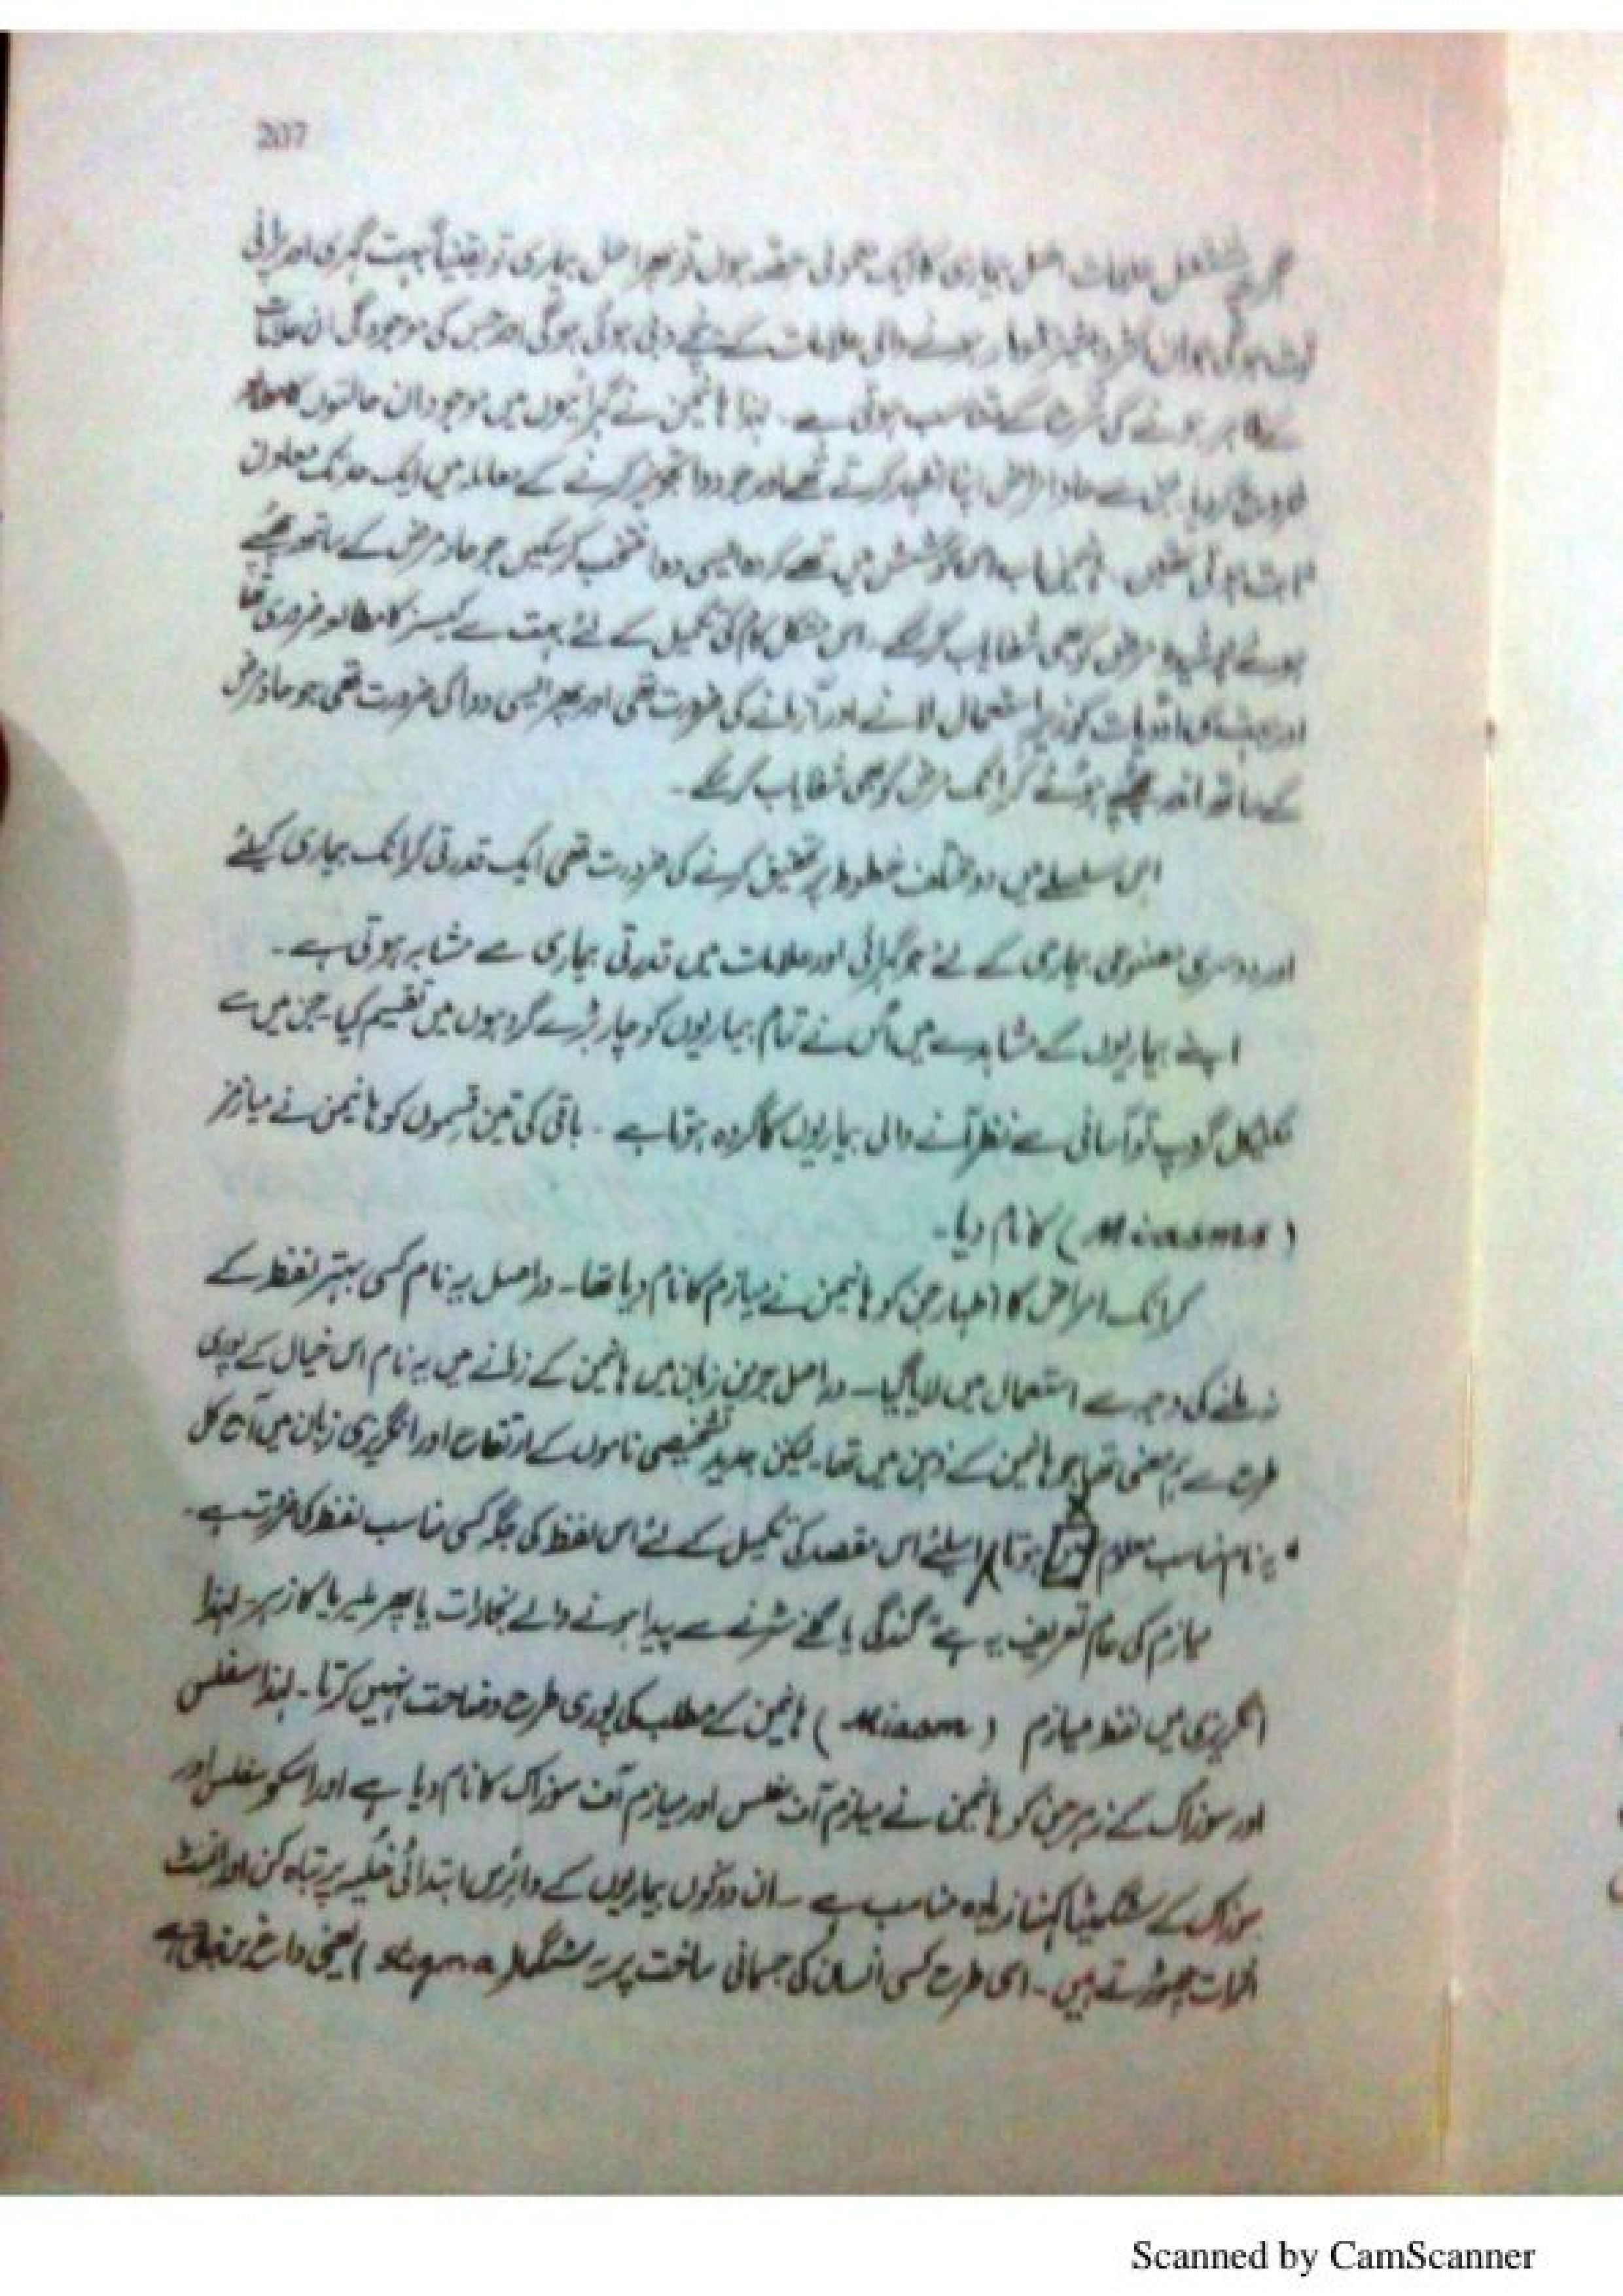 207
علامات اصل بیماری کا ایک معمولی حصہ ہوں تو پھر اصل بیماری تو یقیناً بہت گہری اور پرانی
ہونے والی علامات کے نیچے دبی ہوئی ہوگی اور جس کی موجودگی ان علامات
کے ظاہر ہونے کی کے مناسب ہوتی ہے ۔ لہذا ہانیمن نے گہرائیوں میں موجود ان حالتوں کا مطالعہ
شروع کر دیا جن سے حاد امراض اپنا اظہار کرتے تھے اور جو دوا تجویز کرنے کے معاملہ میں ایک حد تک معاون
ثابت ہوتی تھیں ۔ ہانیمن اب اس کوشش میں تھے کہ وہ ایسی دوا منتخب کر سکیں جو حاد مرض کے ساتھ چھپے
ہوئے پوشیدہ مرض کو بھی شفایاب کر سکے ۔ اس مشکل کام کی تکمیل کے لئے بہت سے کیسز کا مطالعہ ضروری تھا
اور بہت سی ادویات کو زیر استعمال لانے اور آزمانے کی ضرورت تھی اور پھر ایسی دوا کی ضرورت تھی جو حاد مرض
کے ساتھ اندر چھپے ہوئے کرانک مرض کو بھی شفایاب کر سکے ۔
اس سلسلے میں دو مختلف خطوط پر تحقیق کرنے کی ضرورت تھی ایک قدرتی کرانک بیماری کیلئے
اور دوسری مصنوعی بیماری کے لئے جو گہرائی اور علامات میں قدرتی بیماری سے مشابہ ہوتی ہے ۔
اپنے بیماریوں کے مشاہدے میں اس نے تمام بیماریوں کو چار بڑے گروہوں میں تقسیم کیا ۔ جن میں سے
گروپ تو آسانی سے نظر آنے والی بیماریوں کا گروہ ہوتا ہے ۔ باقی کی تین قسموں کو ہانیمن نے میازمز
( Miasms ) کا نام دیا ۔
کرانک امراض کا اظہار جن کو ہانیمن نے میازم کا نام دیا تھا ۔ دراصل یہ نام کسی بہتر لفظ کے
نہ ملنے کی وجہ سے استعمال میں لایا گیا ۔ دراصل جرمن زبان میں ہانیمن کے زمانے میں یہ نام اس خیال کے پوری
طرح سے ہم معنی تھا جو ہانیمن کے ذہن میں تھا ۔ لیکن جدید تشخیصی ناموں کے ارتقاء اور انگریزی زبان میں آج کل
یہ نام مناسب معلوم ہوتا اسلئے اس مقصد کی تکمیل کے لئے اس لفظ کی جگہ کسی مناسب لفظ کی ضرورت ہے ۔
میازم کی عام تعریف یہ ہے گندگی یا گلنے سڑنے سے پیدا ہونے والے بخارات یا پھر ملیریا کا زہر ۔ لہذا
انگریزی میں لفظ میازم ( Miasm ) ہانیمن کے مطلب کی پوری طرح وضاحت نہیں کرتا ۔ لہذا سفلس
اور سوزاک کے زہر جن کو ہانیمن نے میازم آف سفلس اور میازم آف سوزاک کا نام دیا ہے اور اسکو سفلس اور
سوزاک کے سٹگمیٹا کہنا زیادہ مناسب ہے ۔ ان دونوں بیماریوں کے وائرس ابتدائی خلیہ پر تباہ کن اور انمٹ
اثرات چھوڑتے ہیں ۔ اسی طرح کسی انسان کی جسمانی ساخت پر یہ سٹگما ( stigma ) یعنی داغ
Scanned by CamScanner